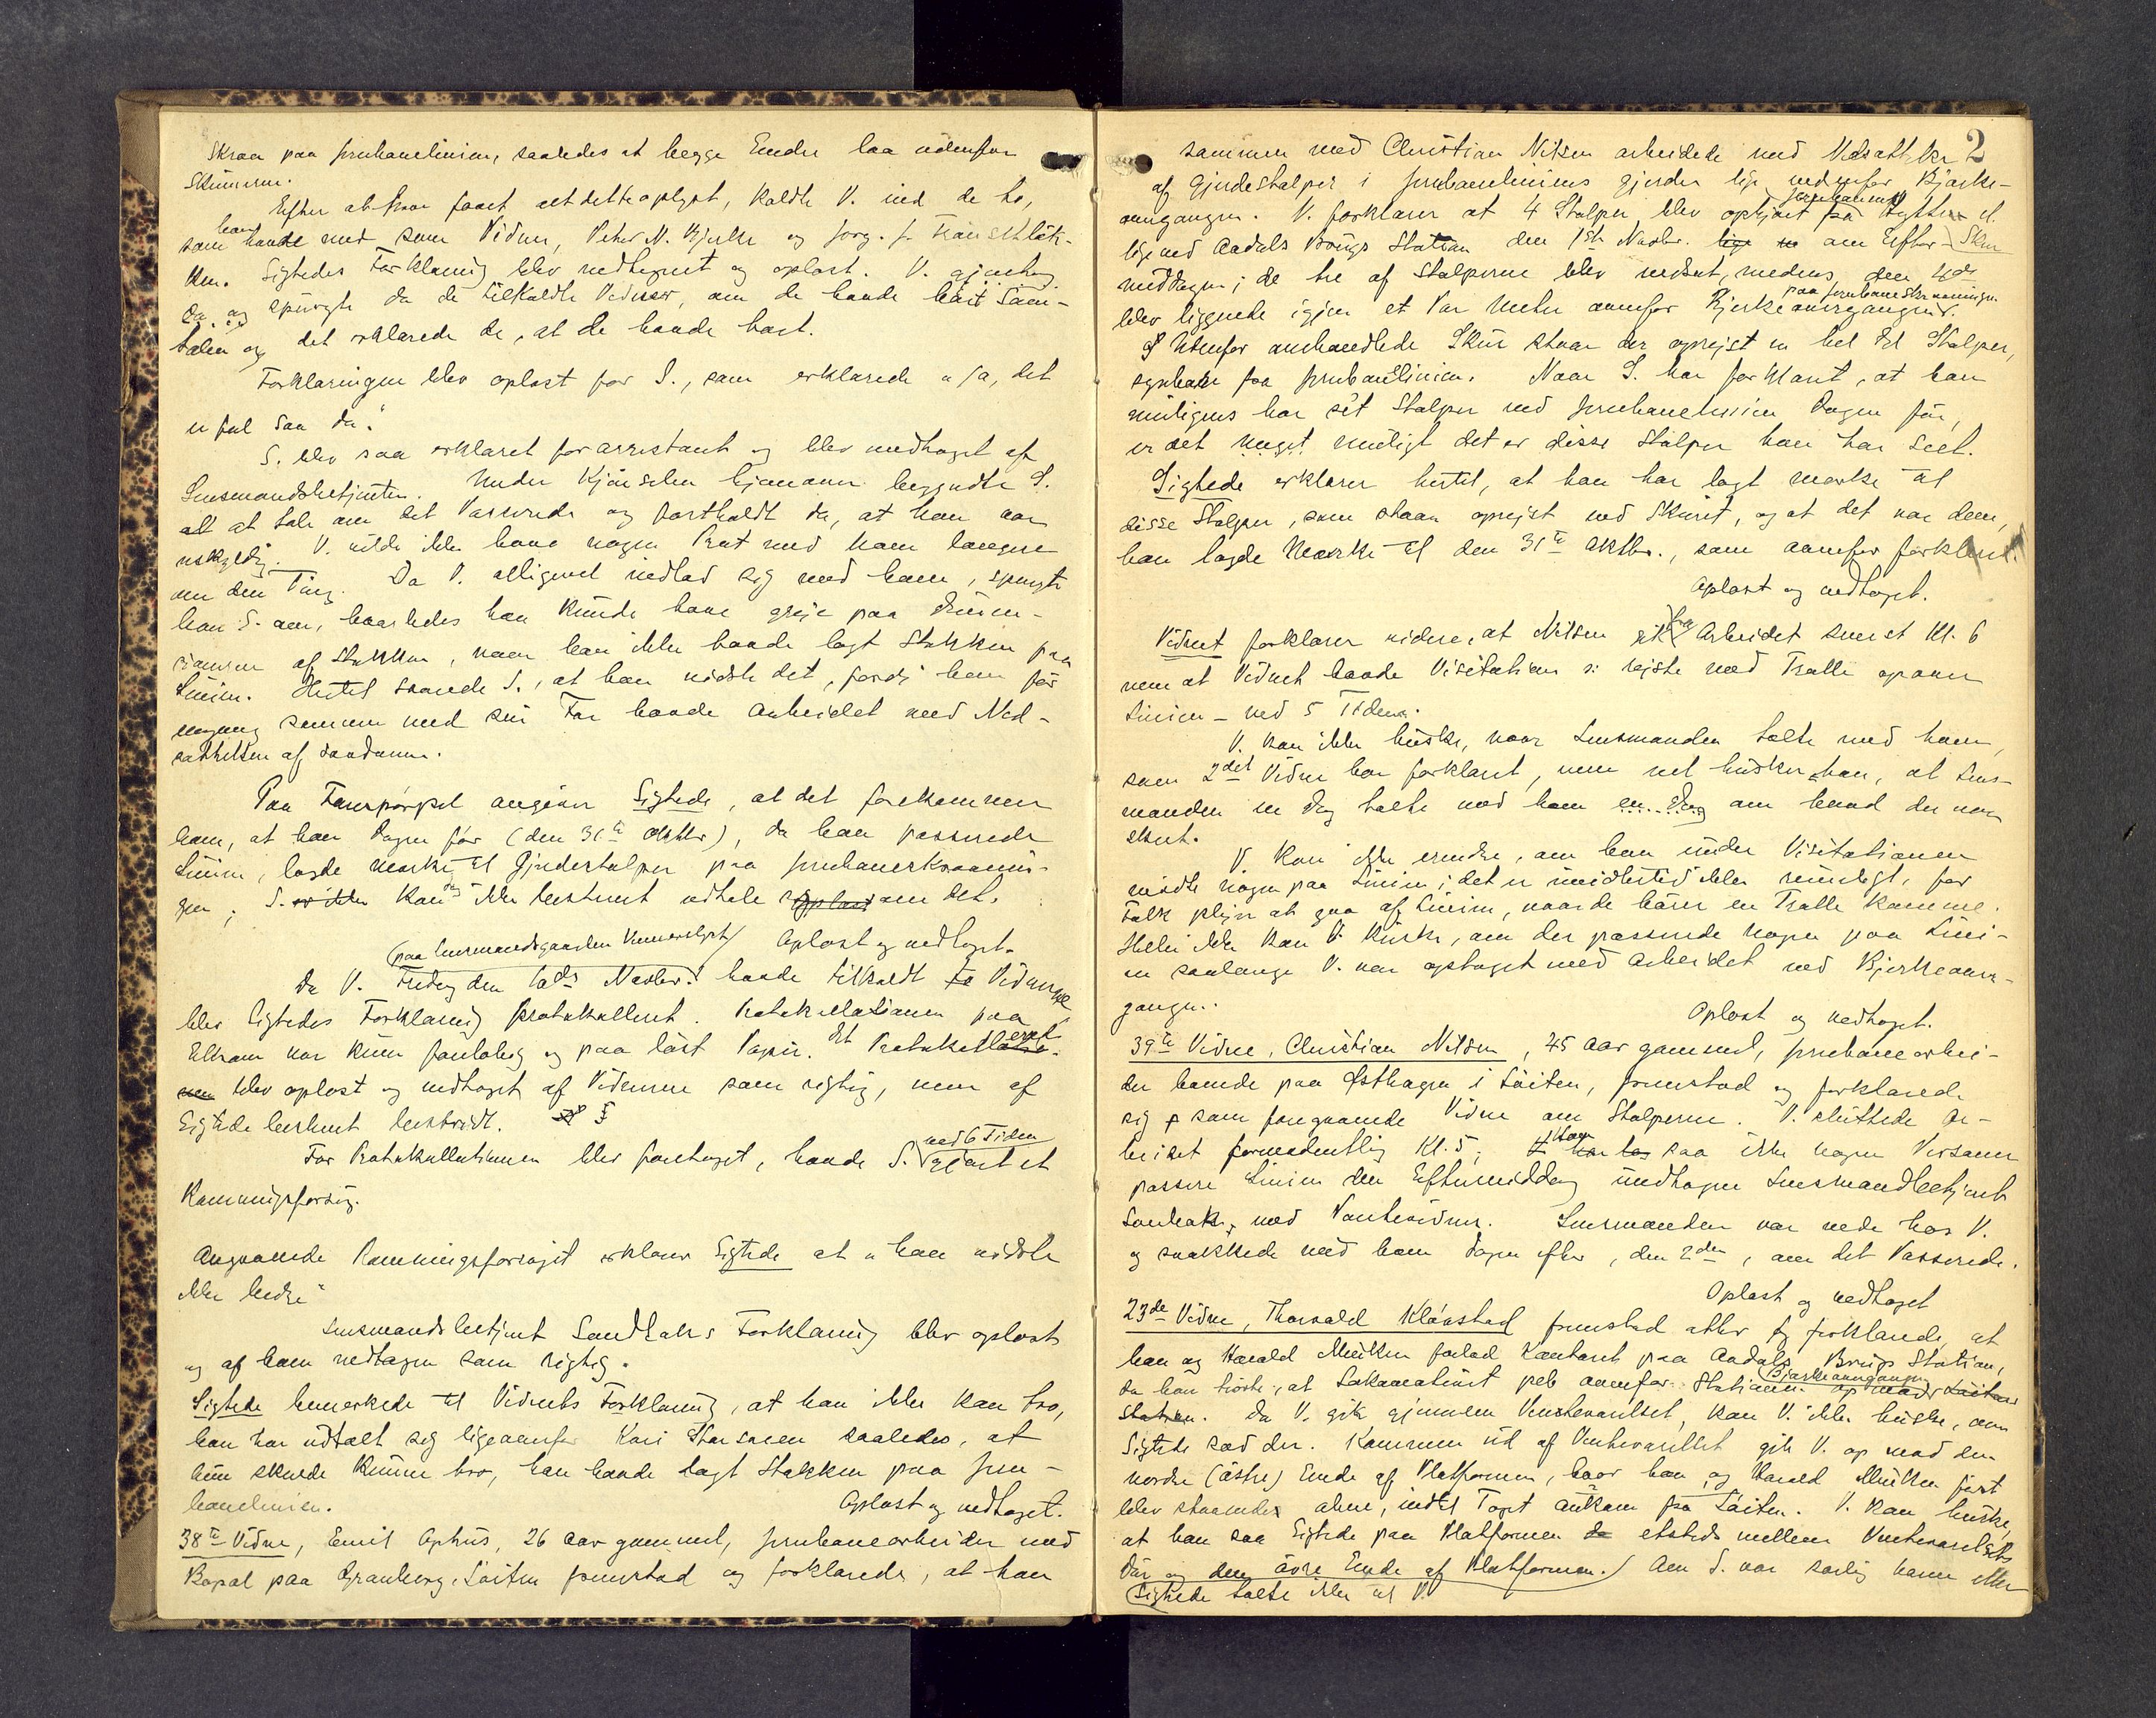 Skraa paa Jernbanelinien, saaledes at begge Ender laa udenfor
Skinnerne.
Efter at have faaet alt dette oplyst, kaldte V. ind de to,
som han havde med som Vidner, Peter N. Bjerke og Jørg. J.
ken. Sigtedes Forklaring blev nedtegnet og oplæst. V.
og spurgte da de tilkaldte Vidner, om de havde hørt Sam-
talen og det erklærede de, at de havde hørt.
Forklaringen blev oplæst for S., som erklærede "ja, det
er fal saa da."
S. blev saa erklæret for arrestant og blev medtaget af
Lensmandsbetjenten. Under Kjørselen hjemover begyndte S.
alt at tale om det Passerede og fortholdt da, at han var
uskyldig. V. vilde ikke have nogen Prat med ham længere
om den Ting. Da V. alligevel indlod sig med ham, spurgte
han S. om, hvorledes han kunde have greje paa
af Stokken, naar han ikke havde lagt Stokken paa
Linien. Hertil svarede S., at han vidste det, fordi han før
engang sammen med sin Far havde arbeidet med Ned-
sættelsen af saadanne.
Paa Forespørgsel angiver Sigtede, at det forekommer
ham, at han Dagen før (den 31te Oktbr), da han passerede
Linien, lagde Mærke til Gjerdestolper paa Jernbaneskraanin-
gen; S. er ikke kan dog ikke bestemt udtale sig om det.
(paa Lensmandsgaarden Oplæst og vedtaget.
Da V. Fredag den 10de Novbr. havde tilkaldt to Vidner
blev Sigtedes Forklaring protokolleret. Protokollationen paa
Ellram var kun foreløbig og paa løst Papir. Det Protokollerede
blev oplæst og vedtaget af Vidnerne som rigtig, men af
Sigtede bestemt bestridt.
Før Protokollationen blev foretaget, havde S. ved 6 Tiden gjort et
Rømningsforsøg.
Angaaende Rømningsforsøget erklærer Sigtede at "han vidste
ikke bedre"
Lensmandsbetjent Sandbaks Forklaring blev oplæst
og af ham vedtagen som rigtig.
Sigtede bemerkede til Vidnets Forklaring, at han ikke kan tro,
han har udtalt sig ligeoverfor Kari Thorsen saaledes, at
hun skulde kunne tro, han havde lagt Stokken paa Jern-
banelinien. Oplæst og vedtaget.
38te Vidne, Emil Ophus, 26 Aar gammel, Jernbanearbeider med
Bopæl paa Granberg i Løiten fremstod og forklarede, at han
2
sammen med Christian Nilsen arbeidede med Nedsættelse
af Gjerdestolper i Jernbaneliniens gjerder lige nedenfor Bjerke-
overgangen. V. forklarer at 4 Stolper blev opkjørt fra Jernbanens
lige ved Aadals Brugs Station den 1ste Novbr. om Efter-
middagen; de tre af Stolperne blev nedsat, medens den 4de
blev liggende igjen et Par Meter ovenfor Bjerkeovergangen paa Jernbaneskraaningen.
Udenfor omhandlede Skur staar der oprejst en hel Del Stolper,
synbare fra Jernbanelinien. Naar S. har forklaret, at han
muligens har set Stolper ved Jernbanelinien Dagen før,
er det meget muligt det er disse Stolper han har seet.
Sigtede erklærer hertil, at han har lagt Mærke til
disse Stolper, som staar oprejst ved Skuret, og at det var dem,
han lagde Mærke til den 31te Oktbr., som ovenfor forklaret.
Oplæst og vedtaget.
Vidnet forklarer videre, at Nilsen gik fra Arbeidet senest Kl. 6
men at Vidnet havde Visitation o: rejste med Tralle opover
Linien – ved 5 Tiden.
V. kan ikke huske, naar Lensmanden talte med ham,
som 2det Vidne har forklaret, men vel husker han, at Lens-
manden en Dag talte med ham en Dag om hvad der var
skeet.
V. kan ikke erindre, om han under Visitationen
mødte nogen paa Linien; det er imidlertid ikke rimeligt, for
Folk plejer at gaa af Linien, naar de hører en Tralle komme.
Heller ikke kan V. huske, om der passerede nogen paa Lini-
en saalænge V. var optaget med Arbeidet ved Bjerkeover-
gangen.
Oplæst og vedtaget.
39te Vidne, Christian Nilsen, 45 Aar gammel, Jernbanearbei-
der boende paa Østhagen i Løiten, fremstod og forklarede
sig som foregaaende Vidne om Stolperne. V. sluttede Ar-
beidet formodentlig Kl. 5; Han saa ikke nogen Personer
passere Linien den Eftermiddag undtagen Lensmandbetjent
Sandbak, med Vantevidner. Lensmanden var nede hos V.
og snakkede med ham Dagen efter, den 2den, om det Passerede.
Oplæst og vedtaget
23de Vidne, Thorvald Kløvstad fremstod atter og forklarede, at
han og Harald Meikken forlod Kontoret paa Aadals Brugs Station,
da han hørte, at Lokomotivet peb ovenfor Stationen Bjerkeovergangen op mod Løiten
Station. Da V. gik gjennem Venteværelset, kan V. ikke huske, om
Sigtede sad der. Kommen ud af Venteværelset gik V. op mod den
nordre (østre) Ende af Platformen, hvor han og Harald Meikken først
blev staaende alene, indtil Toget ankom fra Løiten. V. kan huske,
at han saa Sigtede paa Platformen etsteds mellem Venteværelsets
Dør og den øvre Ende af Platformen.) Om S. var sørlig kom eller
(Sigtede talte ikke til V.